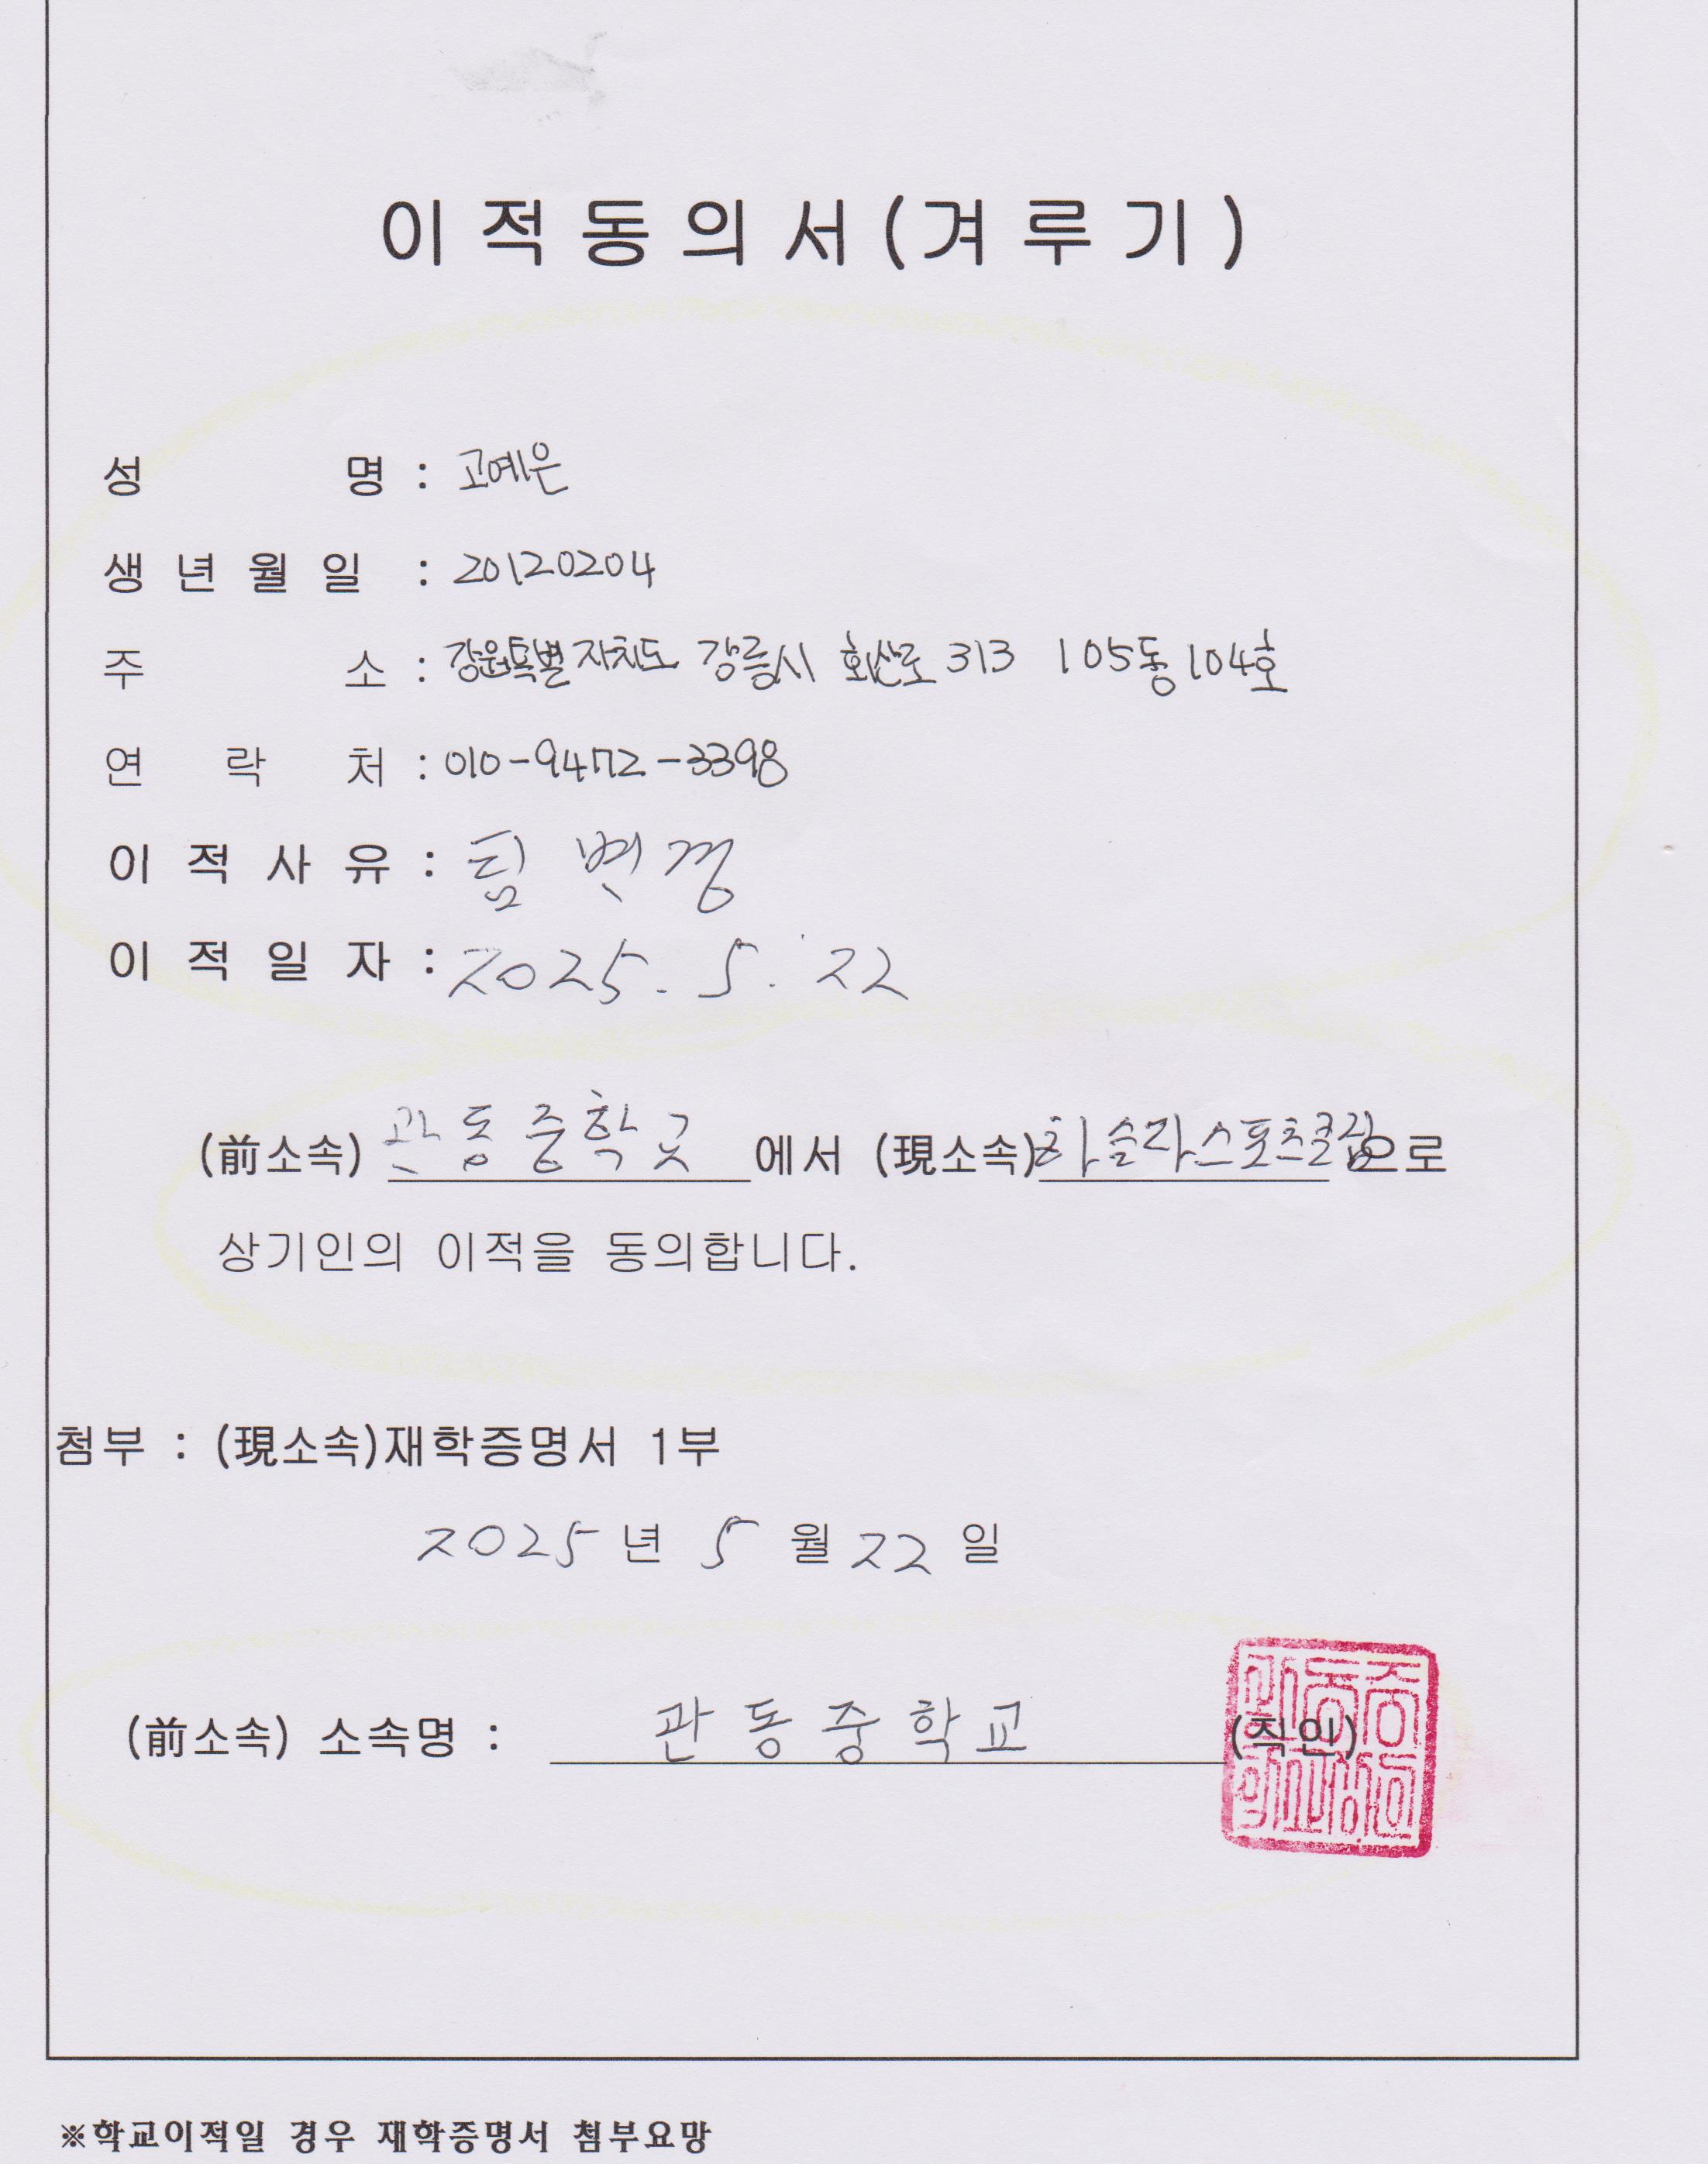 이적동의서(겨루기)
성 명 : 고예은
생년월일 : 20120204
주 소 : 강원특별자치도 강릉시 회산로 313 105동 104호
연 락 처 : 010-9472-3398
이적사유 : 팀 변경
이적일자 : 2025. 5. 22
(前소속) 관동중학교 에서 (現소속)하슬라스포츠클럽으로
상기인의 이적을 동의합니다.
첨부 : (現소속)재학증명서 1부
2025년 5월 22일
(前소속) 소속명 : 관동중학교 (직인)
※학교이적일 경우 재학증명서 첨부요망